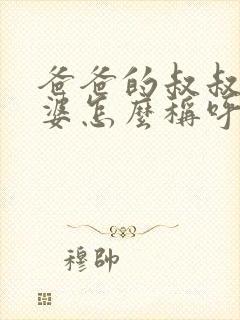 爸爸的叔叔
婆怎麼稱呼
穆帥